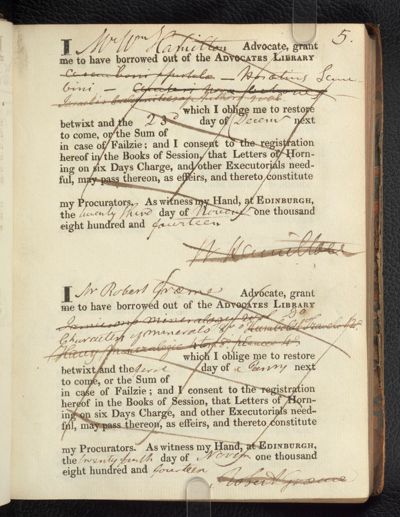 5.
I Mr Wm Hamilton Advocate, grant
me to have borrowed out of the ADVOCATES LIBRARY
Horatius
which I oblige me to restore
betwixt and the 23d day of Decemr next
to come, or the Sum of
in case of Failzie; and I consent to the registration
hereof in the Books of Session, that Letters of Horn-
ing on six Days Charge, and other Executorials need-
ful, may pass thereon, as effeirs, and thereto constitute
my Procurators. As witness my Hand, at EDINBURGH,
the twenty third day of Novemr one thousand
eight hundred and fourteen
W. Hamilton
I Mr Robert Graeme Advocate, grant
me to have borrowed out of the ADVOCATES LIBRARY
Jamesons mineralogy
Characters of minerals Do Humboldt Travels
which I oblige me to restore
betwixt and the day of next
to come, or the Sum of
in case of Failzie; and I consent to the registration
hereof in the Books of Session, that Letters of Horn-
ing on six Days Charge, and other Executorials need-
ful, may pass thereon, as effeirs, and thereto constitute
my Procurators. As witness my Hand, at EDINBURGH,
the day of Novemr one thousand
eight hundred and fourteen
Robert Graeme